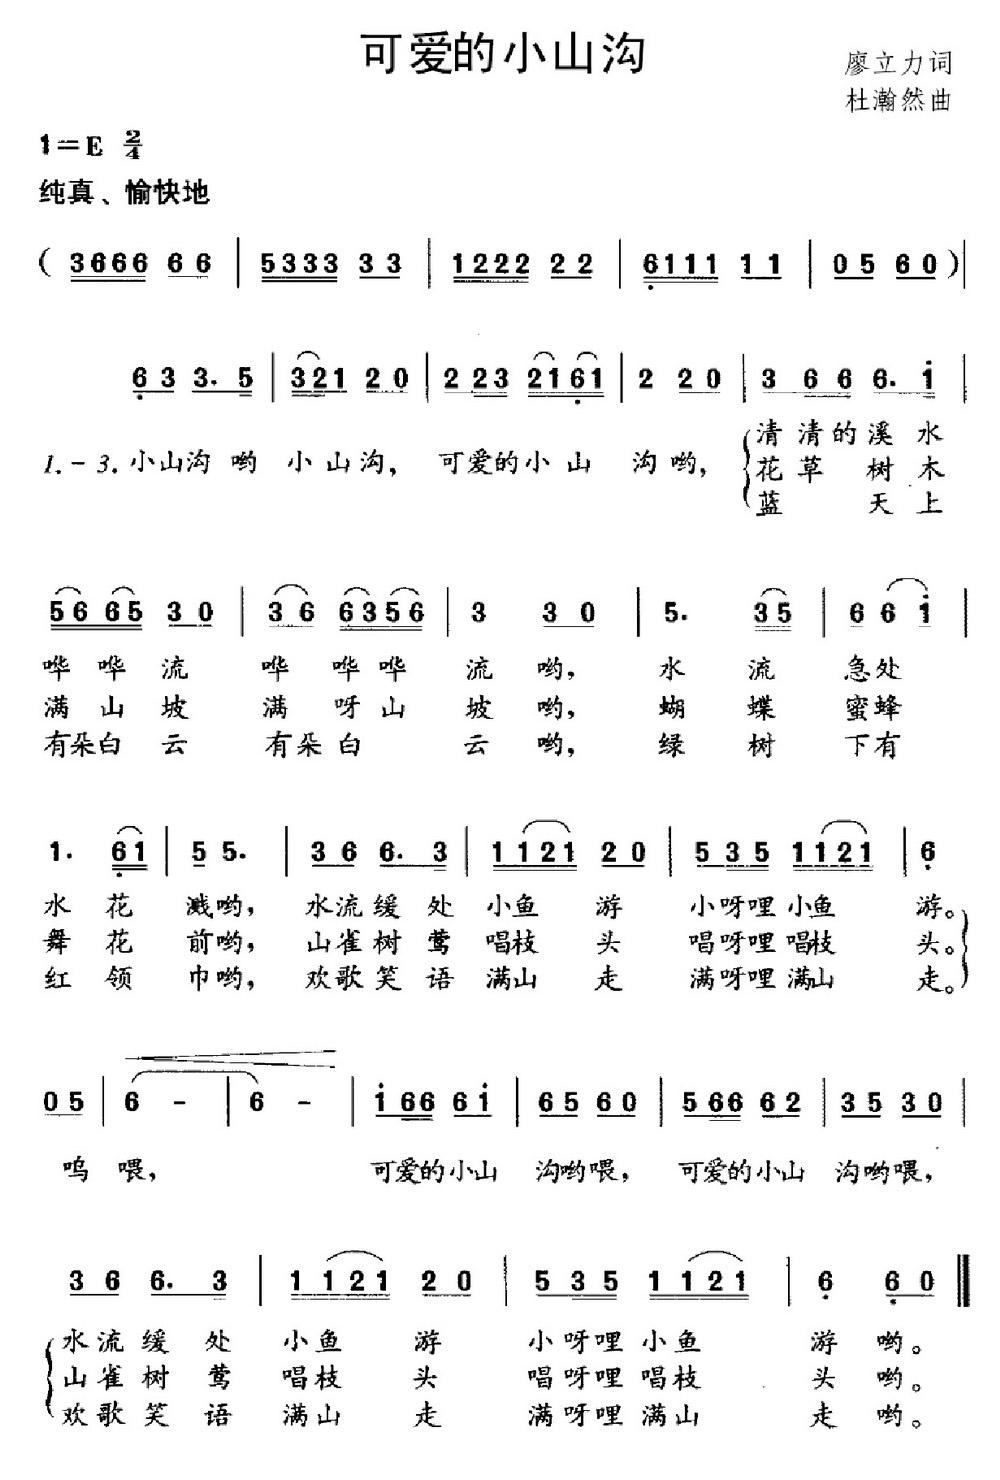 可爱的小山沟
廖立力词
杜瀚然曲
1=E 2/4
纯真、愉快地
( 3666 66 | 5333 33 | 1222 22 | 6111 11 | 05 60 ) |
63 3. 5 | 321 20 | 223 2161 | 2 20 | 3 66 6. 1 |
1.-3. 小山沟 哟 小山沟， 可爱的小山 沟哟， 清清的溪水
花草 树木
蓝 天上
56 65 30 | 36 6356 | 3 30 | 5. 35 | 66 1 |
哗哗流 哗哗哗 流哟， 水流 急处
满山坡 满呀山 坡哟， 蝴蝶 蜜蜂
有朵白云 有朵白 云哟， 绿树 下有
1. 61 | 5 5. | 36 6. 3 | 1121 20 | 535 1121 | 6
水花 溅哟， 水流缓处 小鱼游 小呀哩小鱼 游。
舞花 前哟， 山雀树莺 唱枝头 唱呀哩唱枝 头。
红领 巾哟， 欢歌笑语 满山走 满呀哩满山 走。
05 | 6 - | 6 - | 166 61 | 65 60 | 566 62 | 35 30 |
呜喂， 可爱的小山 沟哟喂， 可爱的小山 沟哟喂，
36 6. 3 | 1121 20 | 535 1121 | 6 60
水流缓处 小鱼游 小呀哩小鱼 游哟。
山雀树莺 唱枝头 唱呀哩唱枝 头哟。
欢歌笑语 满山走 满呀哩满山 走哟。